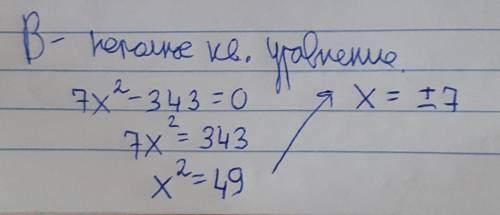 В - неполное кв. уравнение.
7x² - 343 = 0
7x² = 343
x² = 49
x = ±7